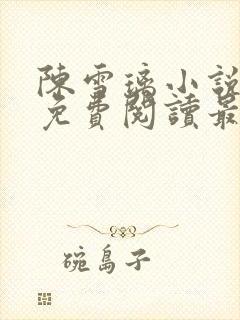 陳雪璃小說
免費閱讀最
碗島子